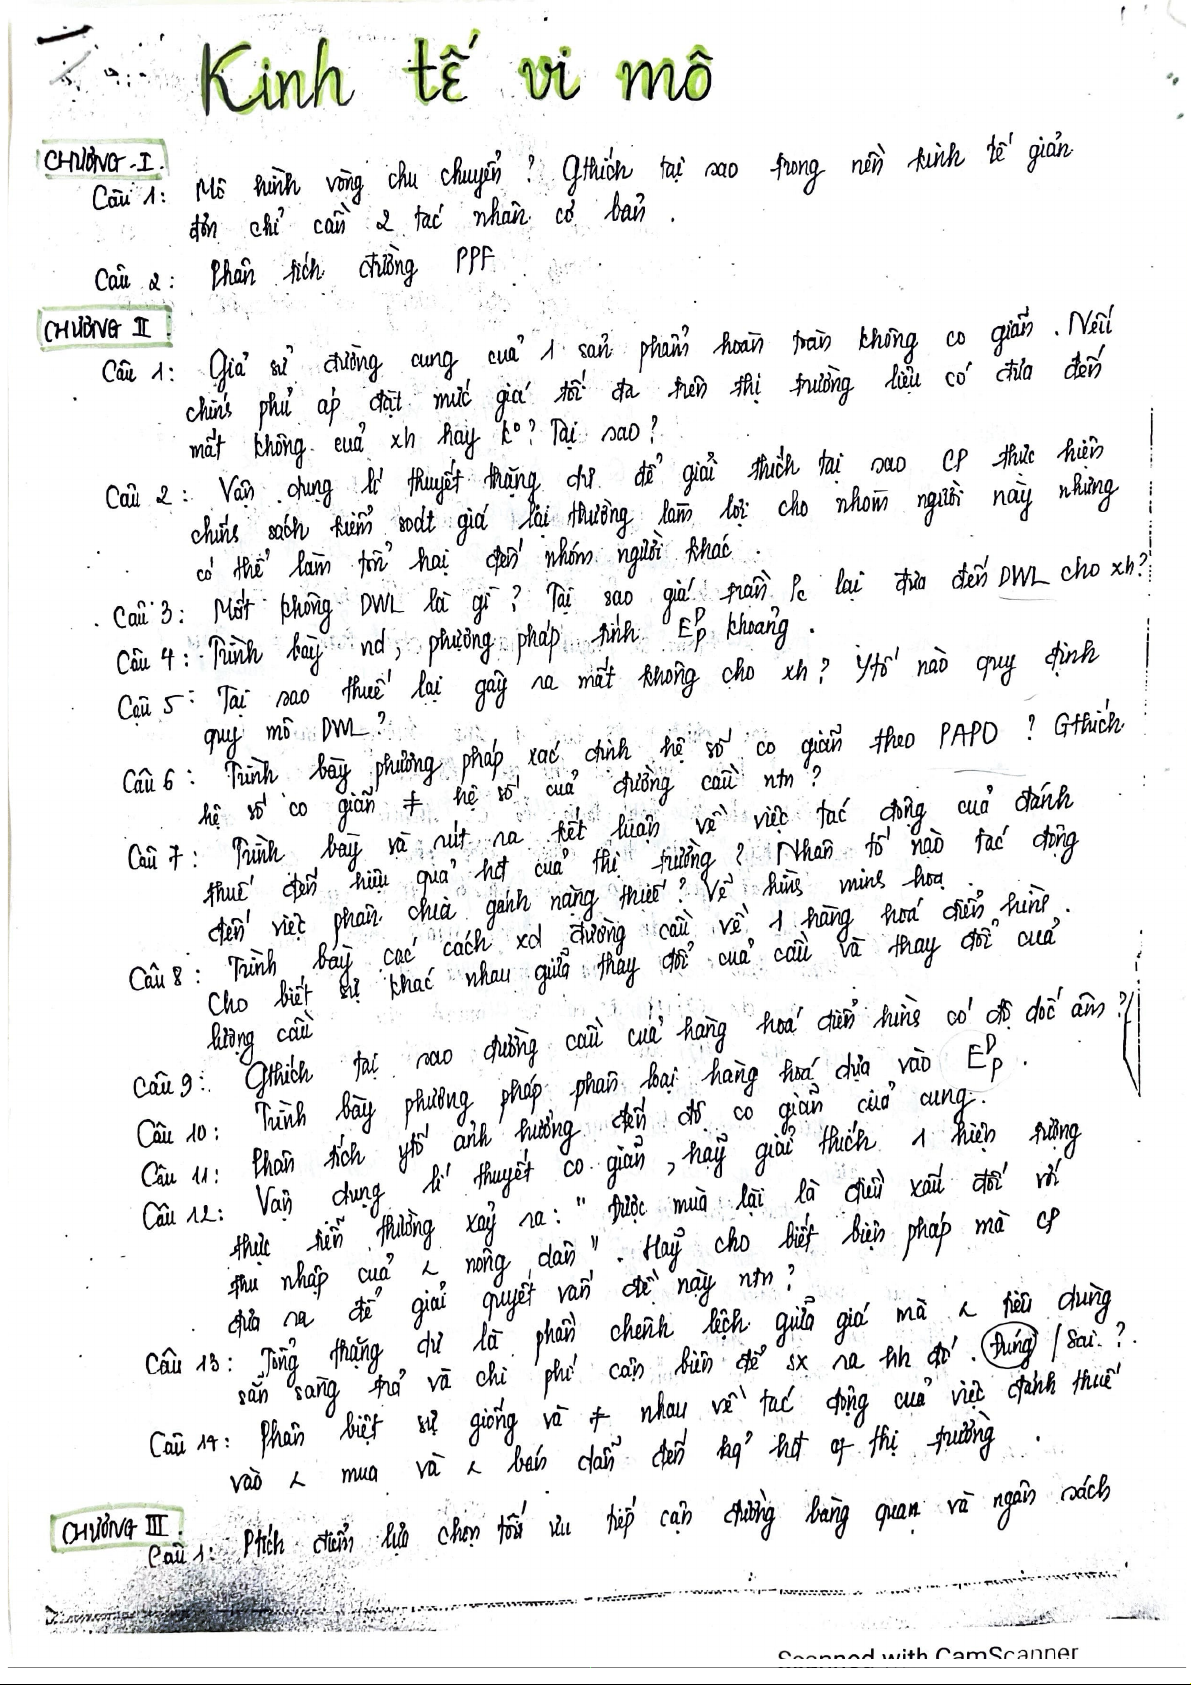 Kinh tế vi mô
CHƯƠNG I.
Câu 1: Mô hình vòng chu chuyển? Gthích tại sao trong nền kinh tế giản
đơn chỉ cần 2 tác nhân cơ bản.
Câu 2: Phân tích đường PPF
CHƯƠNG II:
Câu 1: Giả sử đường cung của 1 sản phẩm hoàn toàn không co giãn. Nếu
chính phủ áp đặt mức giá tối đa trên thị trường liệu có đưa đến
mất không của xh hay ko? Tại sao?
Câu 2: Vận dụng lí thuyết thặng dư để giải thích tại sao CP thực hiện
chính sách kiểm soát giá lại thường làm lợi cho nhóm người này nhưng
có thể làm tổn hại đến nhóm người khác.
Câu 3: Mất không DWL là gì? Tại sao giá trần Pc lại đưa đến DWL cho xh?
Câu 4: Trình bày nd, phương pháp tính EᴰP khoảng.
Câu 5: Tại sao thuế lại gây ra mất không cho xh? Ytố nào quy định
quy mô DWL?
Câu 6: Trình bày phương pháp xác định hệ số co giãn theo PAPD? Gthích
hệ số co giãn ≠ hệ số của đường cầu ntn?
Câu 7: Trình bày và rút ra kết luận về việc tác động của đánh
thuế đến hiệu quả hđ của thị trường? Nhân tố nào tác động
đến việc phân chia gánh nặng thuế? Vẽ hình minh hoạ.
Câu 8: Trình bày các cách xđ đường cầu về 1 hàng hoá điển hình.
Cho biết sự khác nhau giữa thay đổi của cầu và thay đổi của
lượng cầu
Câu 9: Gthích tại sao đường cầu của hàng hoá điển hình có độ dốc âm?
Câu 10: Trình bày phương pháp phân loại hàng hoá dựa vào EᴰP.
Câu 11: Phân tích ytố ảnh hưởng đến độ co giãn của cung.
Câu 12: Vận dụng lí thuyết co giãn, hãy giải thích 1 hiện tượng
thực tiễn thường xảy ra: "Được mùa lại là điều xấu đối với
thu nhập của < nông dân". Hãy cho biết biện pháp mà CP
đưa ra để giải quyết vấn đề này ntn?
Câu 13: Tổng thặng dư là phần chênh lệch giữa giá mà < tiêu dùng
sẵn sàng trả và chi phí cận biên để sx ra hh đó. Đúng / Sai?
Câu 14: Phân biệt sự giống và ≠ nhau về tác động của việc đánh thuế
vào < mua và < bán dẫn đến hq' hđ of thị trường.
CHƯƠNG III:
Câu 1: Ptích điểm lựa chọn tối ưu tiếp cận đường bàng quan và ngân sách
Scanned with CamScanner